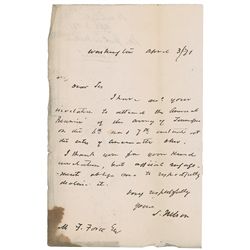 Washington April 3/71
Dear Sir
I have rec'd your
invitation to attend the annual
Reunion of the Army of
on the 6th and 7th instant at
the city of
I thank you for your kind
invitation, but official engage-
ments oblige me to respectfully
decline it.
Very respectfully
Yours
S. Nelson
M. F. Force Esq